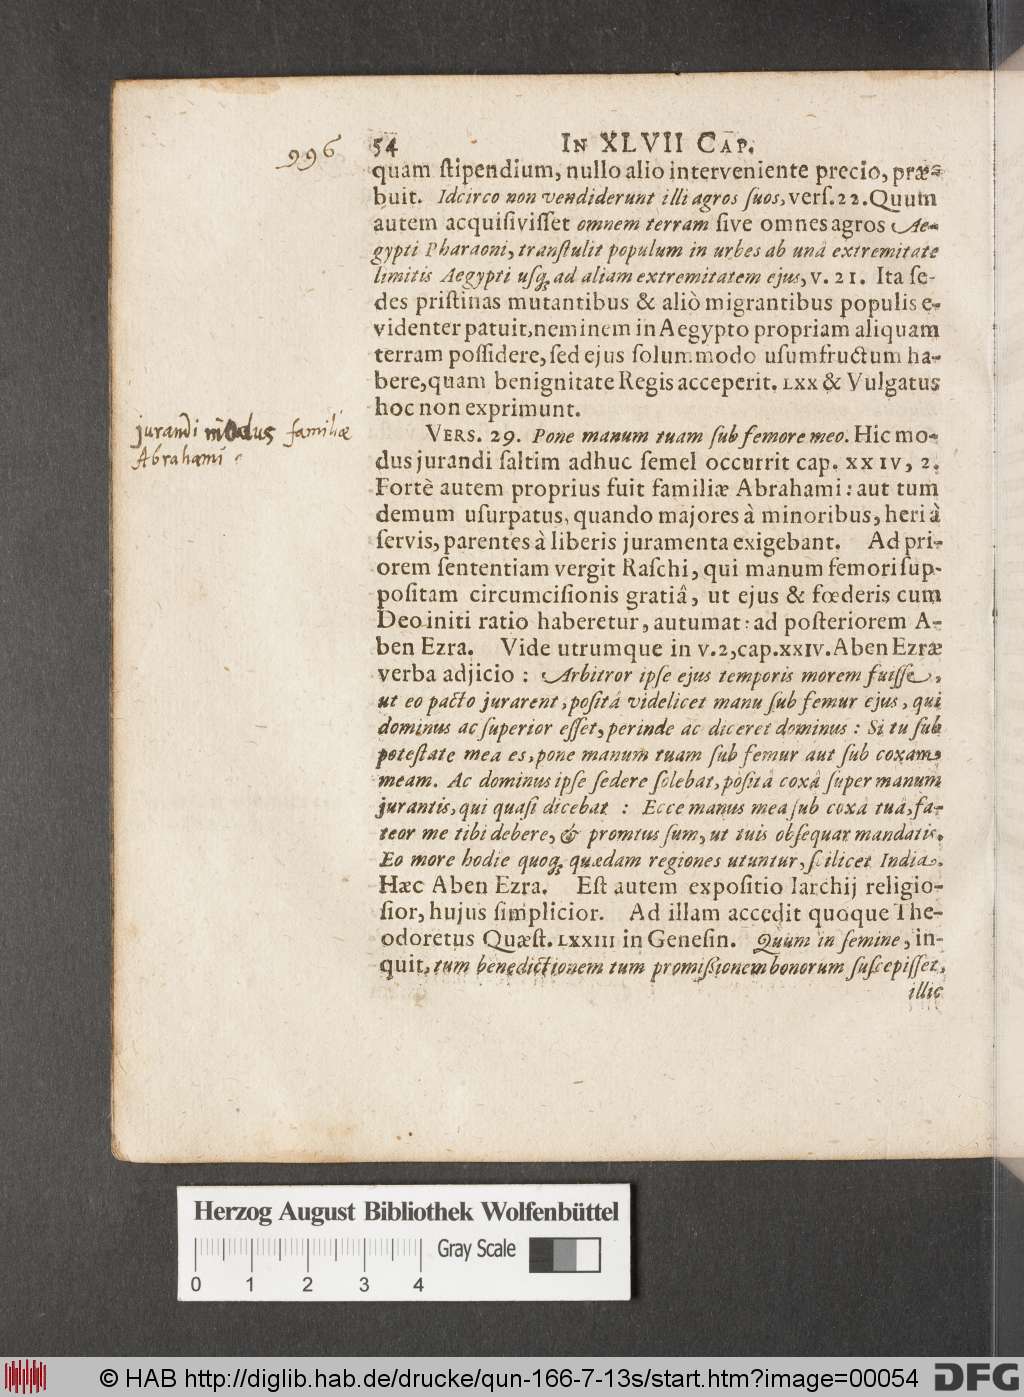 996
54 IN XLVII CAP.
quam ſtipendium, nullo alio interveniente precio, præ-
buit. Idcirco non vendiderunt illi agros ſuos, verſ. 22. Quum
autem acquiſiviſſet omnem terram ſive omnes agros Ae-
gypti Pharaoni, tranſtulit populum in urbes ab unâ extremitate
limitis Aegypti uſq; ad aliam extremitatem ejus, v. 21. Ita ſe-
des priſtinas mutantibus & aliò migrantibus populis e-
videnter patuit, neminem in Aegypto propriam aliquam
terram poſſidere, ſed ejus ſolummodo uſumfructum ha-
bere, quam benignitate Regis acceperit. LXX & Vulgatus
hoc non exprimunt.
jurandi modus familiæ
Abrahami
VERS. 29. Pone manum tuam ſub femore meo. Hic mo-
dus jurandi ſaltim adhuc ſemel occurrit cap. XXIV, 2.
Fortè autem proprius fuit familiæ Abrahami: aut tum
demum uſurpatus, quando majores à minoribus, heri à
ſervis, parentes à liberis juramenta exigebant. Ad pri-
orem ſententiam vergit Raſchi, qui manum femori ſup-
poſitam circumciſionis gratiâ, ut ejus & fœderis cum
Deo initi ratio haberetur, autumat: ad poſteriorem A-
ben Ezra. Vide utrumque in v. 2, cap. XXIV. Aben Ezræ
verba adjicio: Arbitror ipſe ejus temporis morem fuiſſe,
ut eo pacto jurarent, poſitâ videlicet manu ſub femur ejus, qui
dominus ac ſuperior eſſet, perinde ac diceret dominus: Si tu ſub
poteſtate mea es, pone manum tuam ſub femur aut ſub coxam
meam. Ac dominus ipſe ſedere ſolebat, poſitâ coxâ ſuper manum
jurantis, qui quaſi dicebat: Ecce manus mea ſub coxâ tuâ, fa-
teor me tibi debere, & promtus ſum, ut tuis obſequar mandatis.
Eo more hodie quoq; quædam regiones utuntur, ſcilicet India.
Hæc Aben Ezra. Eſt autem expoſitio Iarchij religio-
ſior, hujus ſimplicior. Ad illam accedit quoque The-
odoretus Quæſt. LXXIII in Geneſin. Quum in ſemine, in-
quit, tum benedictionem tum promiſſionem bonorum ſuſcepiſſet,
illic
Herzog August Bibliothek Wolfenbüttel
Gray Scale
0 1 2 3 4
© HAB http://diglib.hab.de/drucke/qun-166-7-13s/start.htm?image=00054 DFG